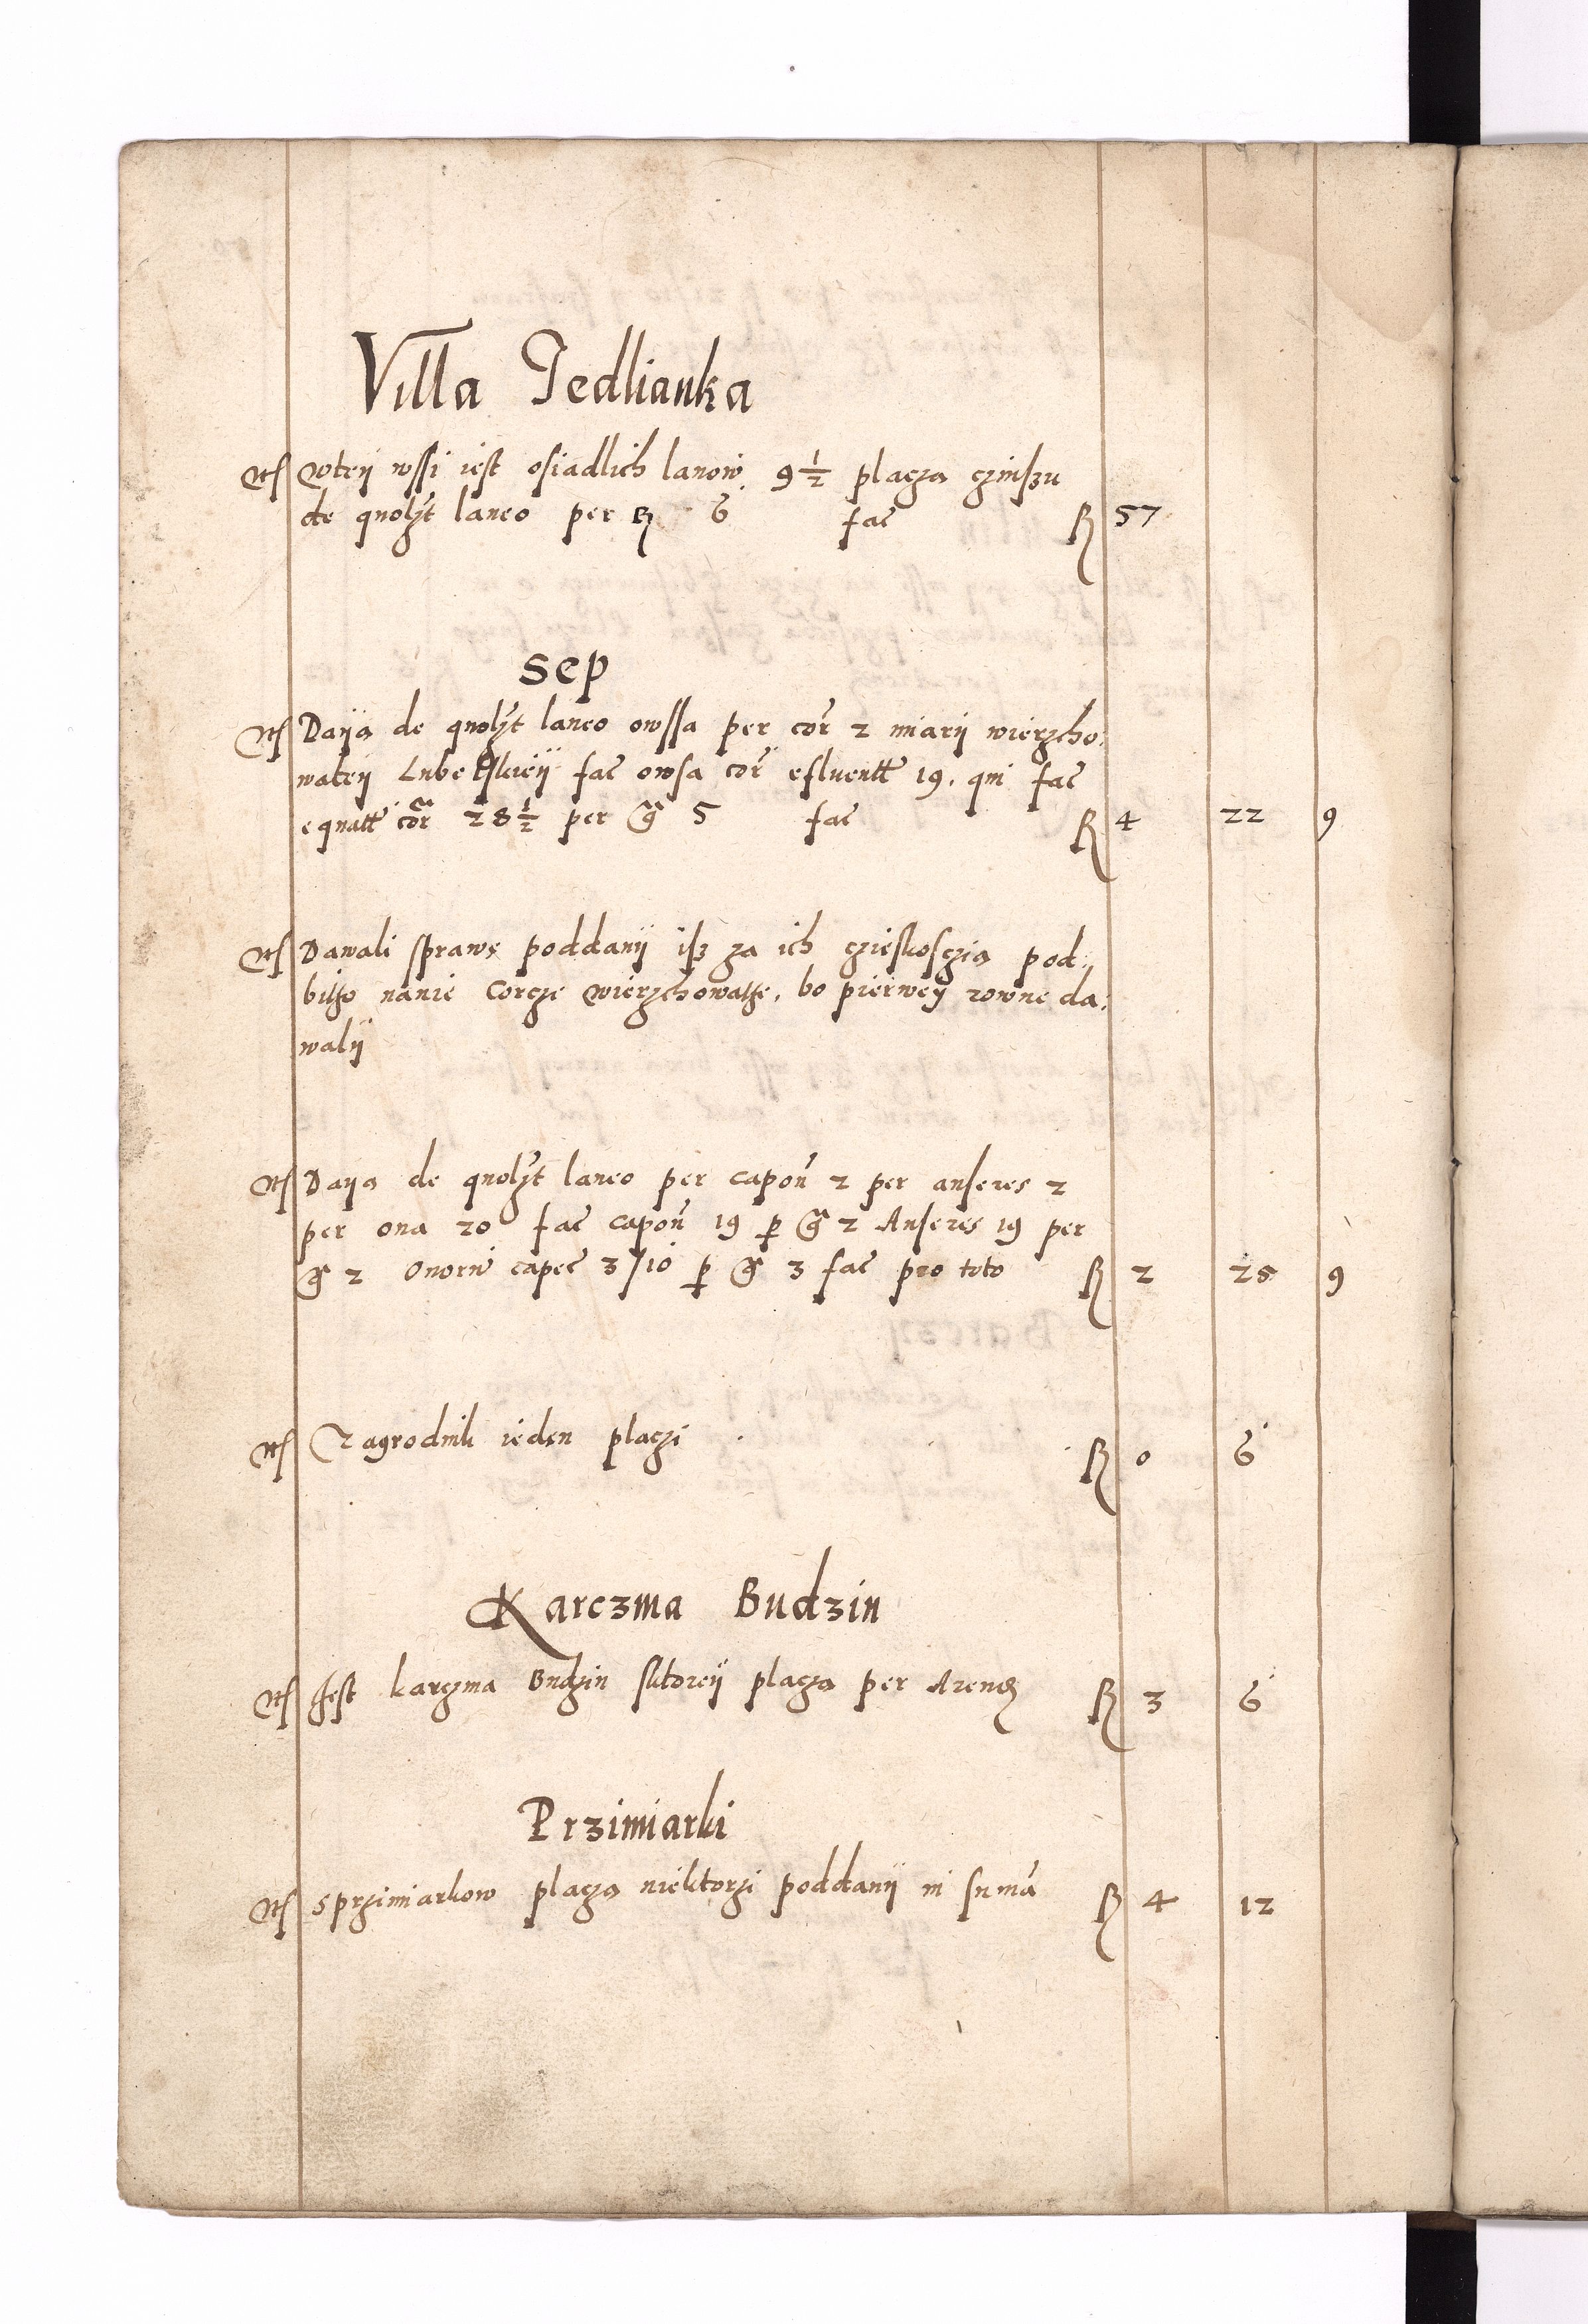 Villa Jedlianka
Wteÿ wssi iest osiadlich lanow. 9 1/2 placza czinszu
de quolȝt laneo per fl 6 fac fl 57
Sep
Daÿa de quolȝt laneo owssa per cor 2 miarÿ wierzcho:
wateÿ Lubelskieÿ fac owsa cor efluentt 19. qui fac
equatt cor 28 1/2 per g 5 fac fl 4 22 9
Dawali sprawę poddanÿ isz za ich czieskosczia pod:
bitho nanie Corcze wierzchowathe, bo pierweÿ rowne da:
walÿ
Daÿa de quolȝt laneo per capon 2 per anseres 2
per oua 20 fac capon 19 p g 2 Anseres 19 per
g 2 Ouorū capec 3/10 p g 3 fac pro toto fl 2 25 9
Zagrodnik ieden placzi fl 0 6
Karczma Budzin
Jest karczma Budzin sktoreÿ placza per Arend fl 3 6
Przimiarki
Sprzimiarkow placza niektorzi poddanÿ in sumā fl 4 12